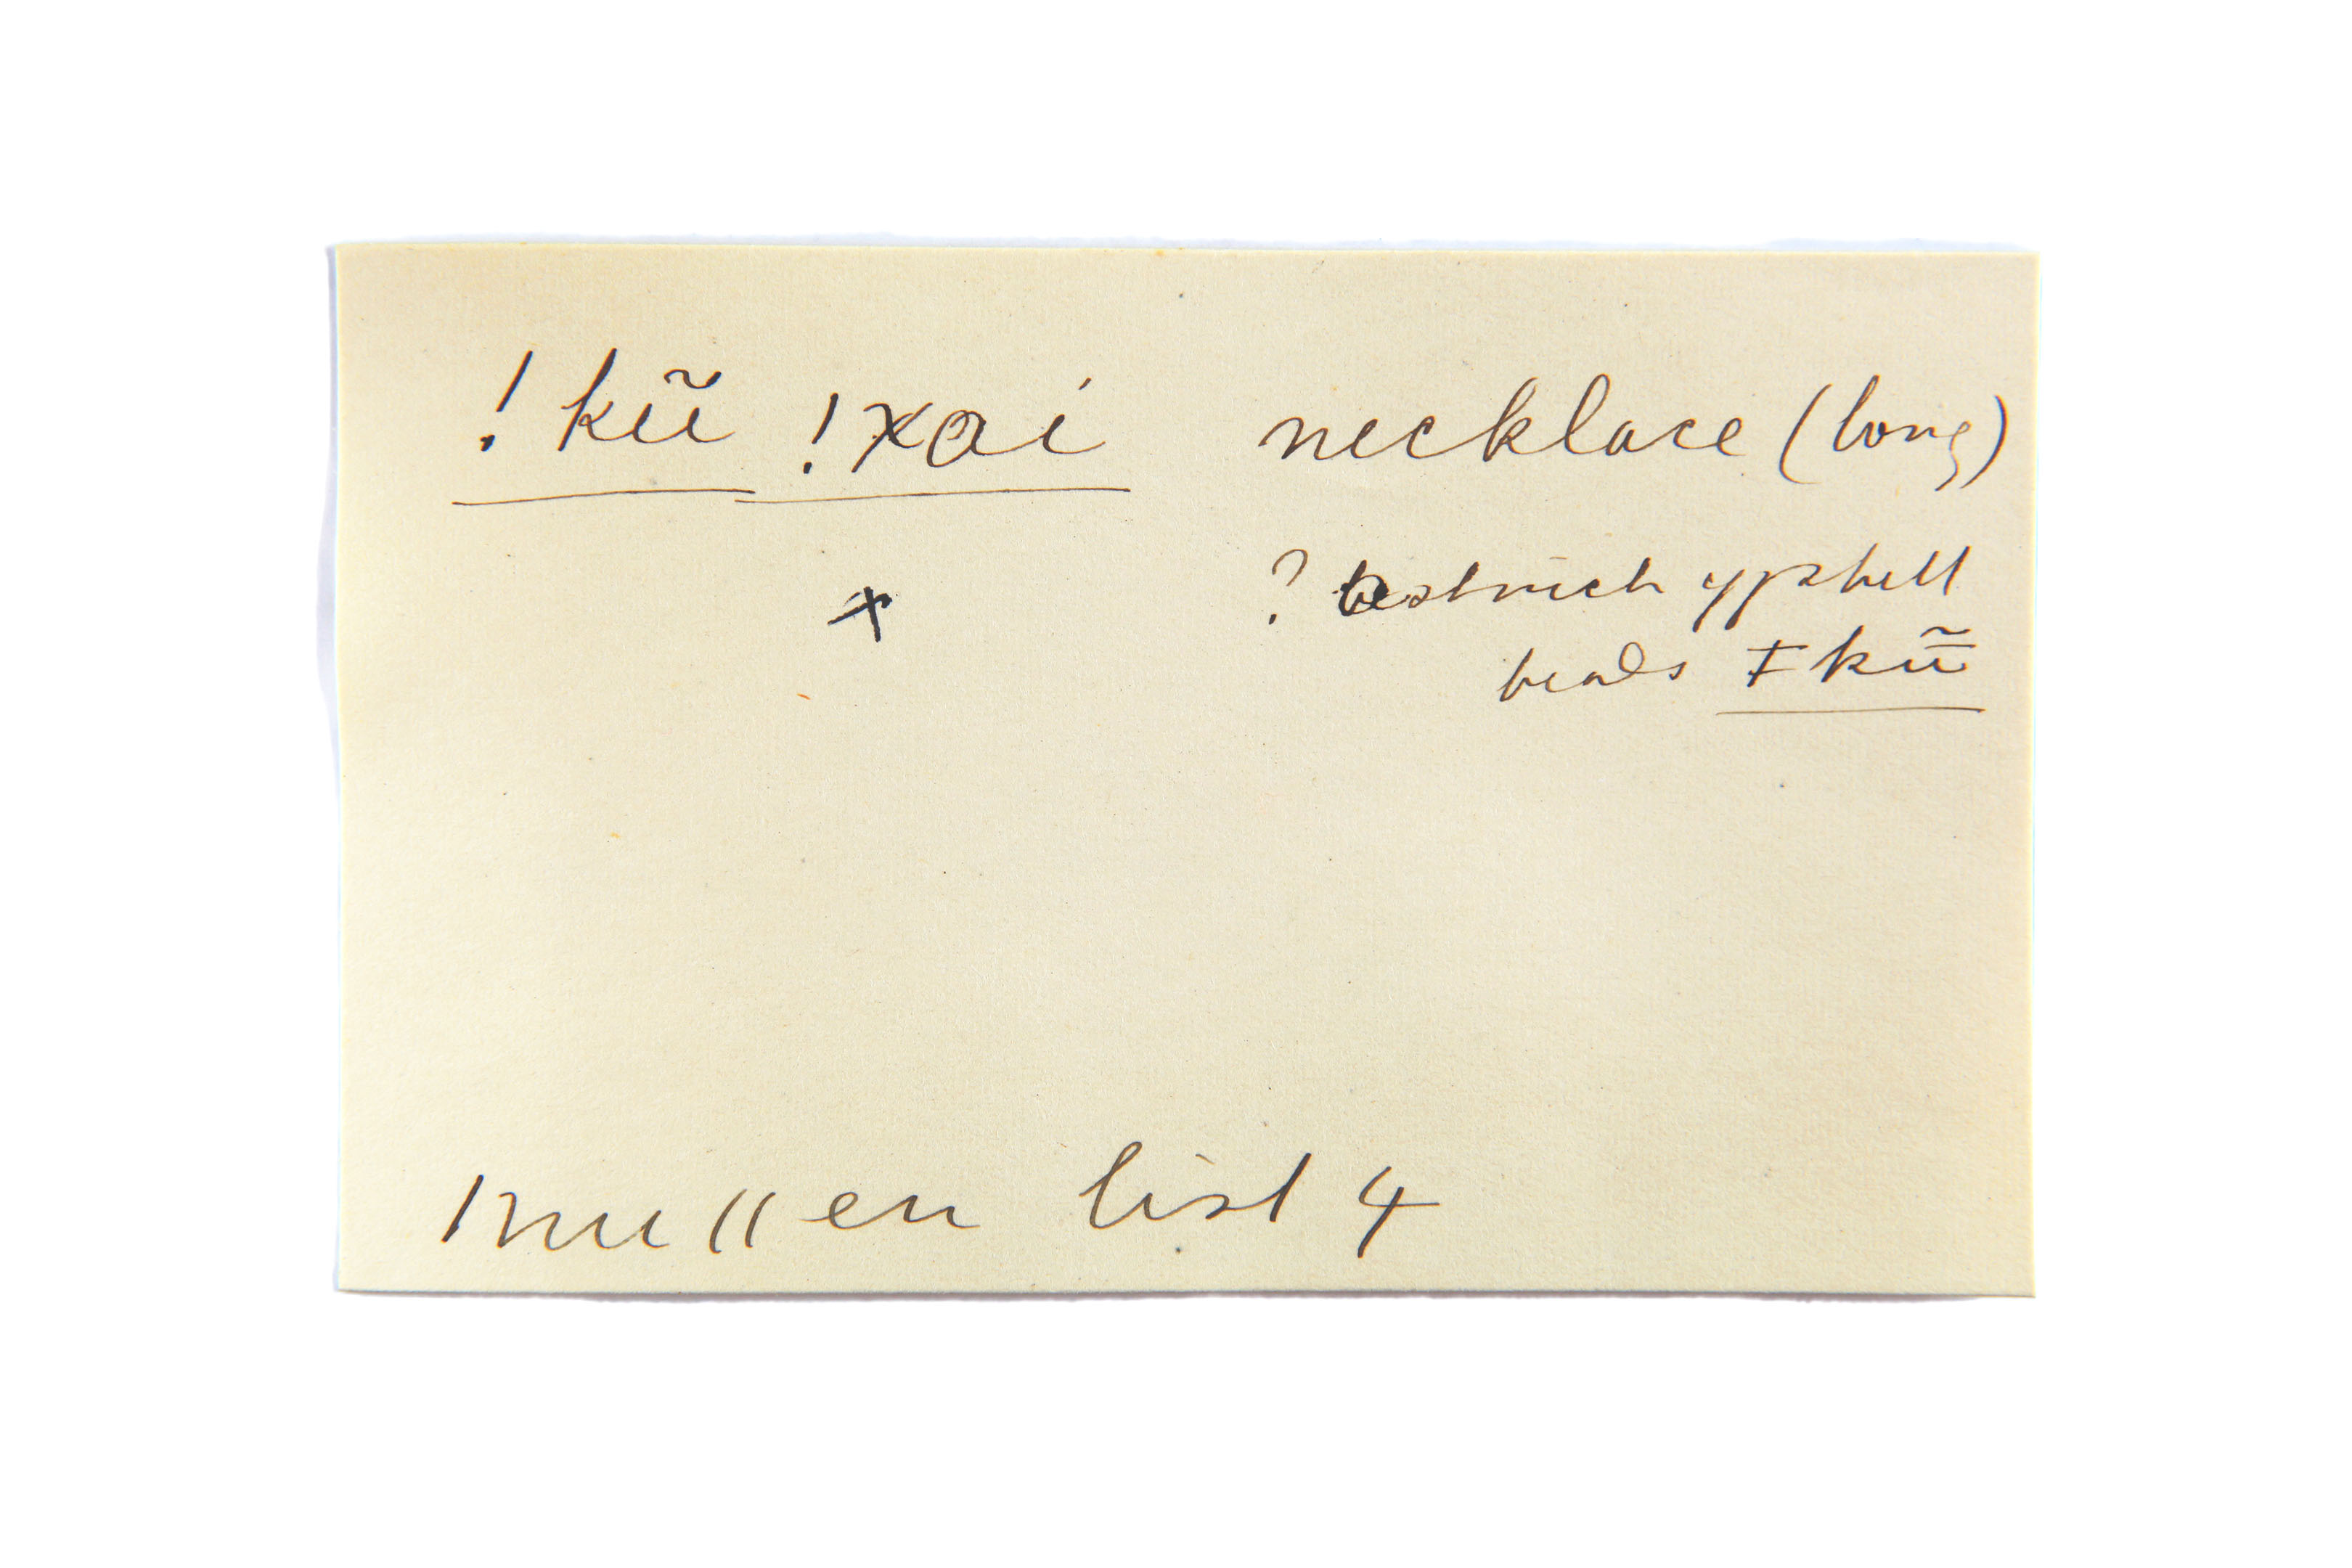 !kũ !xai necklace (long)
x ? ostrich eggshell
beads ǂkũ
ǀnuǁen list 4